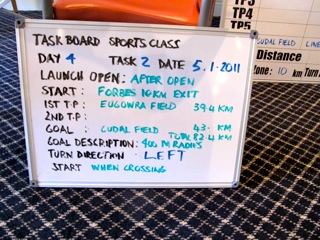 TASK BOARD SPORTS CLASS
DAY 4 TASK 2 DATE 5.1.2011
LAUNCH OPEN: AFTER OPEN
START: FORBES 10KM EXIT
1ST T.P: EUGOWRA FIELD 39.4 KM
2ND T.P:
GOAL: CUDAL FIELD 43. KM
TOTAL 82.4 KM
GOAL DESCRIPTION: 400 M RADIUS
TURN DIRECTION LEFT
START WHEN CROSSING
TP3
TP4
TP5
CUDAL FIELD LINE
Distance
10 km Turn